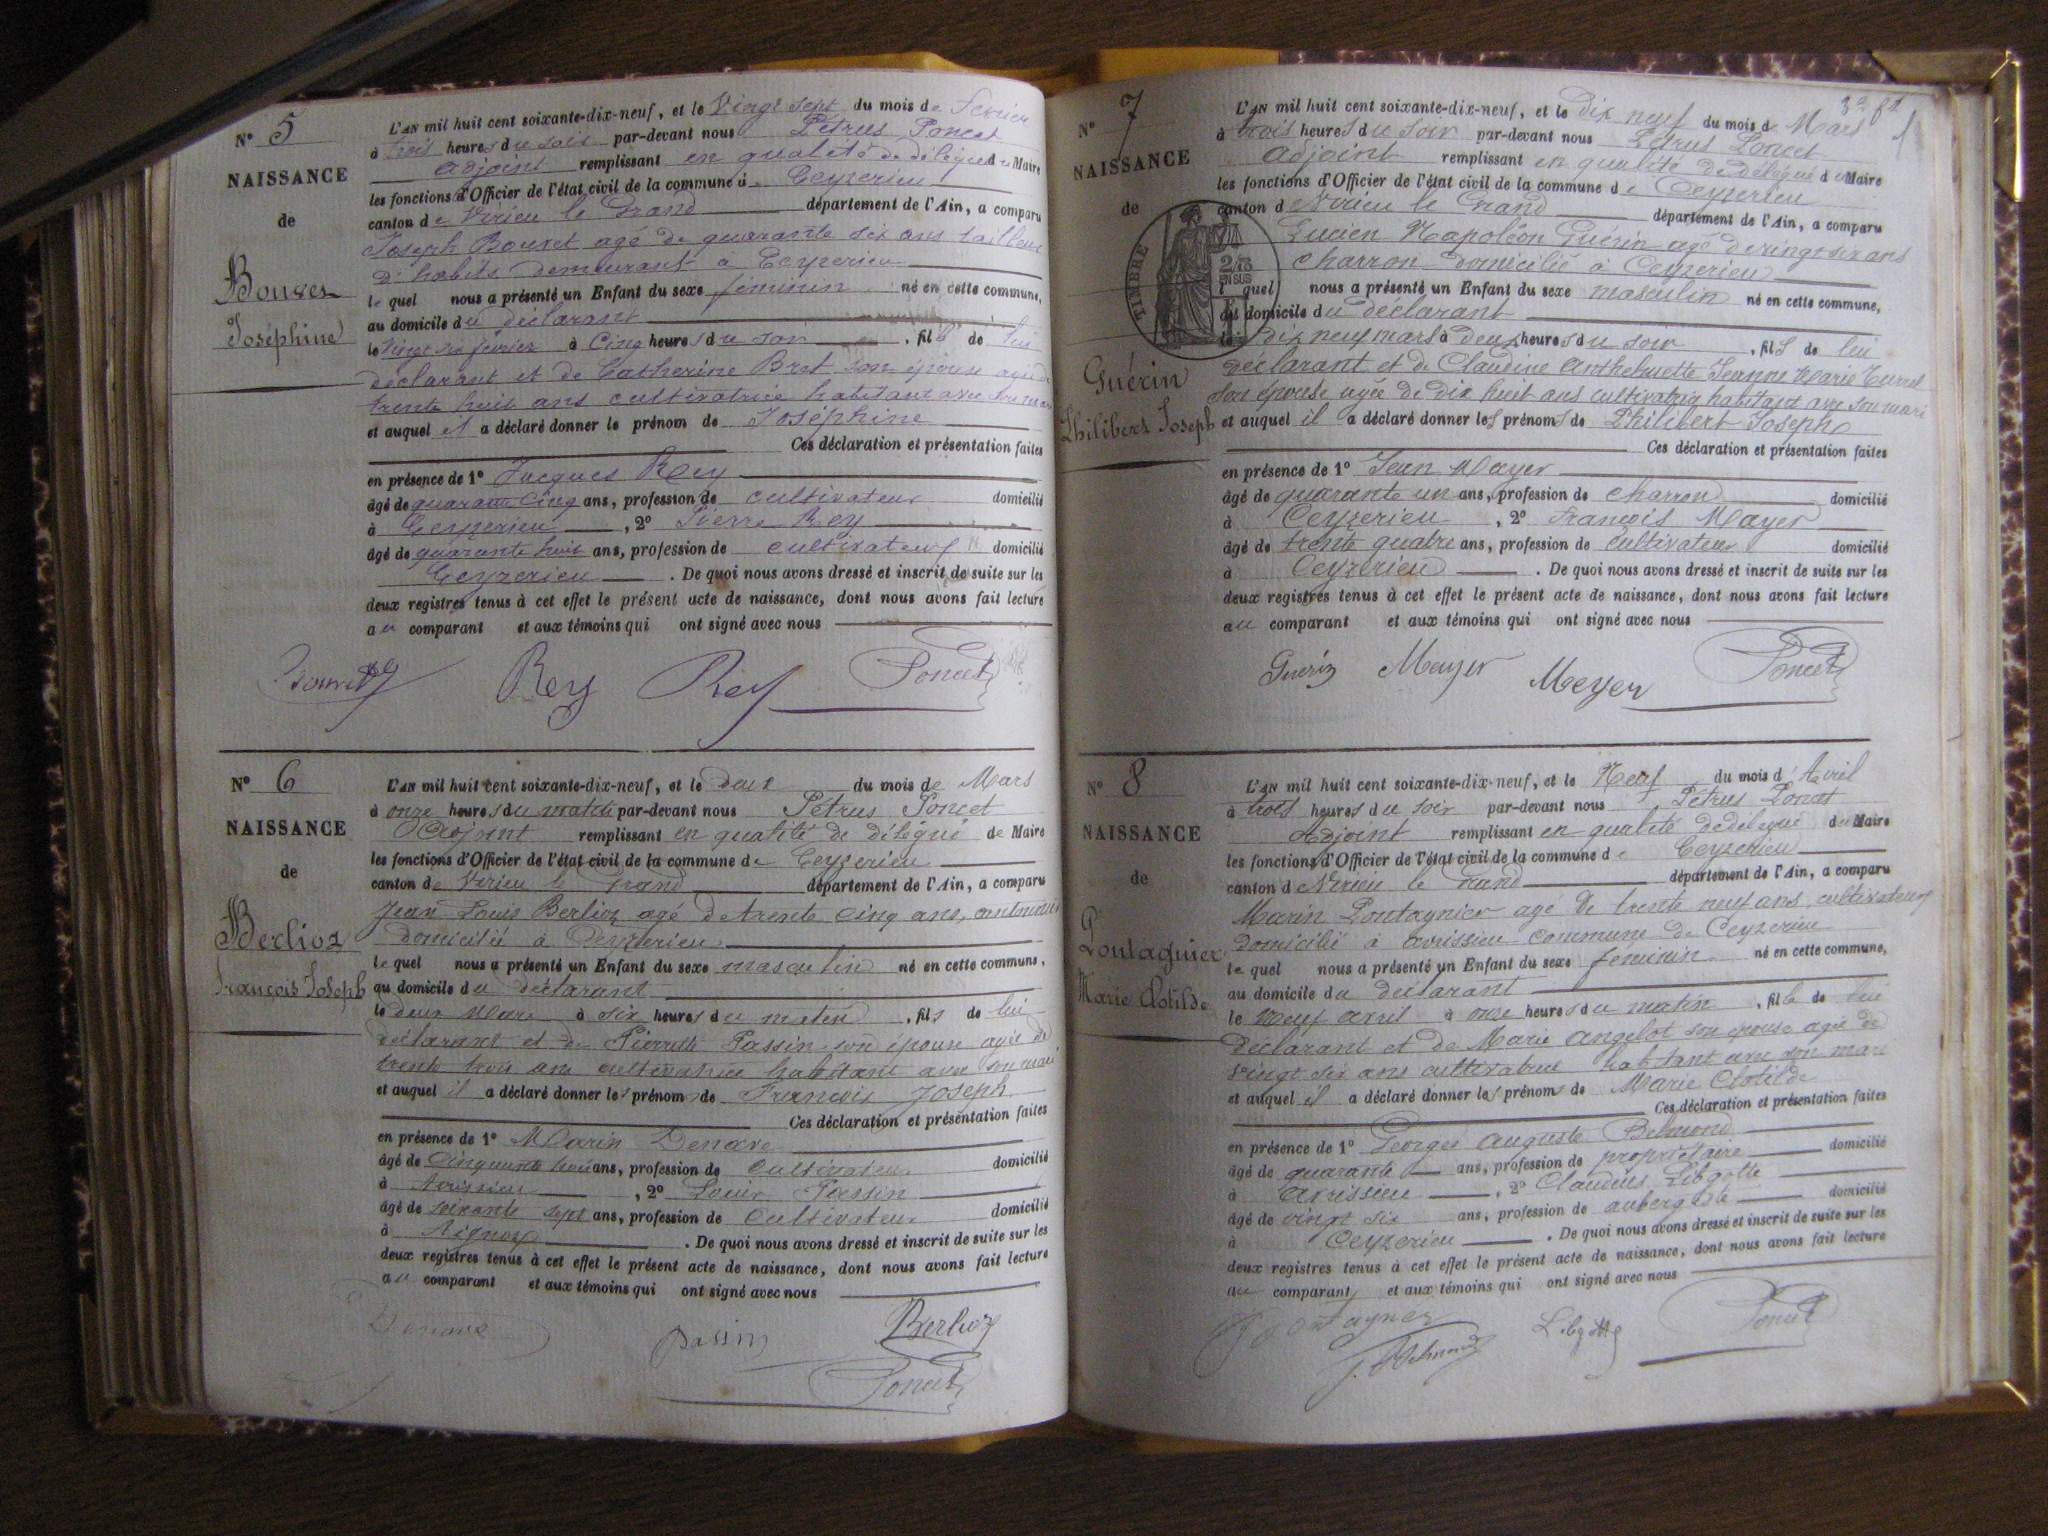 N° 5
NAISSANCE
de
Bouvet
Joséphine
L'AN mil huit cent soixante-dix-neuf, et le Vingt sept du mois de février
à trois heures du soir par-devant nous Pétrus Poncet
adjoint remplissant en qualité de délégué du Maire
les fonctions d'Officier de l'état civil de la commune de Ceyzerieu
canton de Virieu le Grand département de l'Ain, a comparu
Joseph Bouvet agé de quarante six ans tailleur
d'habits demeurant à Ceyzerieu
le quel nous a présenté un Enfant du sexe féminin né en cette commune,
au domicile du déclarant
le vingt six février à Cinq heures du soir, fille de lui
déclarant et de Catherine Bret son épouse agée de
trente huit ans cultivatrice habitant avec son mari
et auquel il a déclaré donner le prénom de Joséphine
Ces déclaration et présentation faites
en présence de 1° Jacques Rey
âgé de quarante Cinq ans, profession de cultivateur domicilié
à Ceyzerieu, 2° Pierre Rey
âgé de quarante huit ans, profession de cultivateur domicilié
Ceyzerieu. De quoi nous avons dressé et inscrit de suite sur les
deux registres tenus à cet effet le présent acte de naissance, dont nous avons fait lecture
au comparant et aux témoins qui ont signé avec nous
Bouvet Rey Rey Poncet
N° 6
NAISSANCE
de
Berlioz
François Joseph
L'AN mil huit cent soixante-dix-neuf, et le deux du mois de Mars
à onze heures du matin par-devant nous Pétrus Poncet
Adjoint remplissant en qualité de délégué de Maire
les fonctions d'Officier de l'état civil de la commune de Ceyzerieu
canton de Virieu le Grand département de l'Ain, a comparu
Jean Louis Berlioz agé de trente cinq ans,
domicilié à Ceyzerieu
le quel nous a présenté un Enfant du sexe masculin né en cette commune,
au domicile du déclarant
le deux Mars à six heures du matin, fils de lui
déclarant et de Pierrette Passin son épouse agée de
trente trois ans cultivatrice habitant avec son mari
et auquel il a déclaré donner les prénoms de François Joseph
Ces déclaration et présentation faites
en présence de 1° Marin Denave
âgé de Cinquante ans, profession de Cultivateur domicilié
à Avrissieu, 2° Louis Passin
âgé de soixante sept ans, profession de Cultivateur domicilié
à Aignoz. De quoi nous avons dressé et inscrit de suite sur les
deux registres tenus à cet effet le présent acte de naissance, dont nous avons fait lecture
au comparant et aux témoins qui ont signé avec nous
Denave Passin Berlioz
Poncet
N° 7
NAISSANCE
de
TIMBRE
2/10
EN SUS
Guérin
Philibert Joseph
L'AN mil huit cent soixante-dix-neuf, et le dix neuf du mois de Mars
à trois heures du soir par-devant nous Pétrus Poncet
Adjoint remplissant en qualité de délégué du Maire
les fonctions d'Officier de l'état civil de la commune de Ceyzerieu
canton de Virieu le Grand département de l'Ain, a comparu
Lucien Napoléon Guérin agé de vingt six ans
charron domicilié à Ceyzerieu
quel nous a présenté un Enfant du sexe masculin né en cette commune,
domicile du déclarant
dix neuf mars à deux heures du soir, fils de lui
déclarant et de Claudine Anthelmette Jeanne Marie
son épouse agée de dix huit ans cultivatrice habitant avec son mari
et auquel il a déclaré donner les prénoms de Philibert Joseph
Ces déclaration et présentation faites
en présence de 1° Jean Mayer
âgé de quarante un ans, profession de charron domicilié
à Ceyzerieu, 2° François Mayer
âgé de trente quatre ans, profession de cultivateur domicilié
à Ceyzerieu. De quoi nous avons dressé et inscrit de suite sur les
deux registres tenus à cet effet le présent acte de naissance, dont nous avons fait lecture
au comparant et aux témoins qui ont signé avec nous
Guérin Mayer Meyer Poncet
N° 8
NAISSANCE
de
Pontagnier
Marie Clotilde
L'AN mil huit cent soixante-dix-neuf, et le Neuf du mois d'Avril
à trois heures du soir par-devant nous Pétrus Poncet
Adjoint remplissant en qualité de délégué du Maire
les fonctions d'Officier de l'état civil de la commune de Ceyzerieu
canton de Virieu le Grand département de l'Ain, a comparu
Marin Pontagnier agé de trente neuf ans cultivateur
domicilié à avrissieu commune de Ceyzerieu
le quel nous a présenté un Enfant du sexe feminin né en cette commune,
au domicile du déclarant
le neuf avril à onze heures du matin, fille de lui
déclarant et de Marie Angelot son épouse agée de
vingt six ans cultivatrice habitant avec son mari
et auquel il a déclaré donner les prénoms de Marie Clotilde
Ces déclaration et présentation faites
en présence de 1° Georges Auguste Belmond
âgé de quarante ans, profession de propriétaire domicilié
à Avrissieu, 2° Claudius Libgotte
âgé de vingt six ans, profession de aubergiste domicilié
à Ceyzerieu. De quoi nous avons dressé et inscrit de suite sur les
deux registres tenus à cet effet le présent acte de naissance, dont nous avons fait lecture
au comparant et aux témoins qui ont signé avec nous
Libgotte Poncet